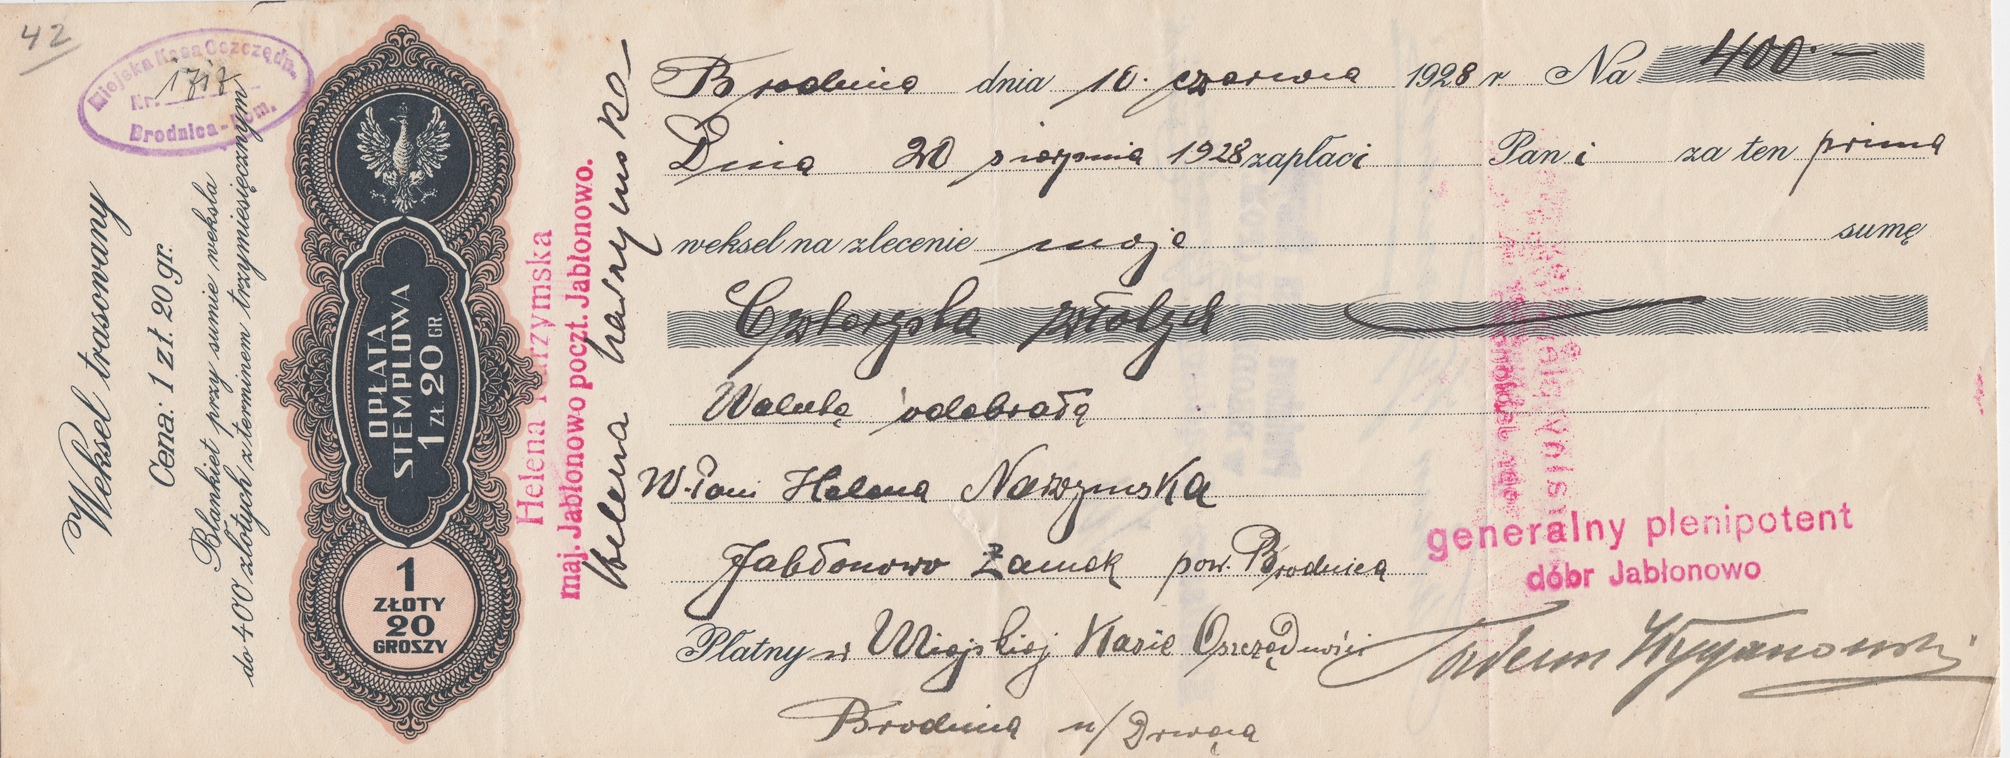 42
Miejska Kasa Oszczędn.
Nr. 1717
Brodnica-Pom.
Weksel trasowany
Cena: 1 zł. 20 gr.
Blankiet przy sumie weksla
do 400 złotych z terminem trzymiesięcznym
OPŁATA
STEMPLOWA
1 ZŁ. 20 GR.
1
ZŁOTY
20
GROSZY
Helena Narzymska
maj. Jabłonowo poczt. Jabłonowo.
Helena Narzymska
Brodnica dnia 10. czerwca 1928 r. Na 400.—
Dnia 20 sierpnia 1928 zapłaci Pani za ten prima
weksel na zlecenie moje sumę
Czterysta złotych
Walutę odebrałą
W. Pani Helena Narzymska
Jabłonowo Zamek pow. Brodnica
Płatny w Miejskiej Kasie Oszczędności
Brodnica n/Drwęcą
generalny plenipotent
dóbr Jabłonowo